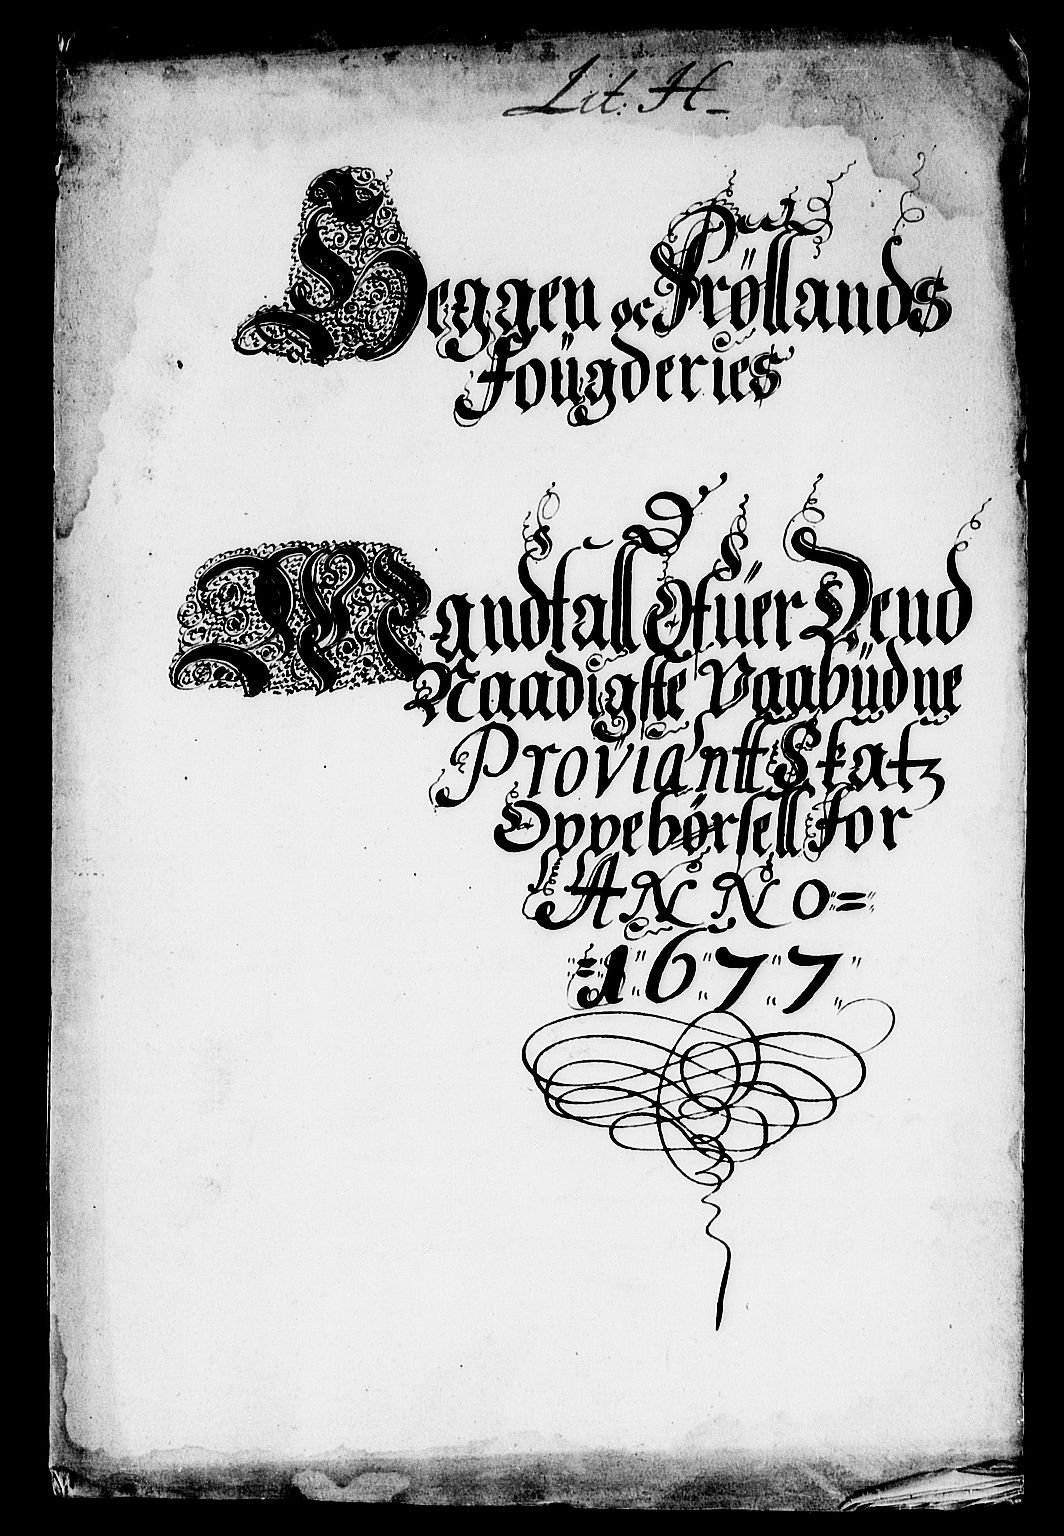 Lit: H
Heggen oc Fröllands
Foügderies
Mandtall Ofüer Dend
Naadigste Paabüdne
Proviantt Skatz
Oppebørsell For
ANNO=
=1677